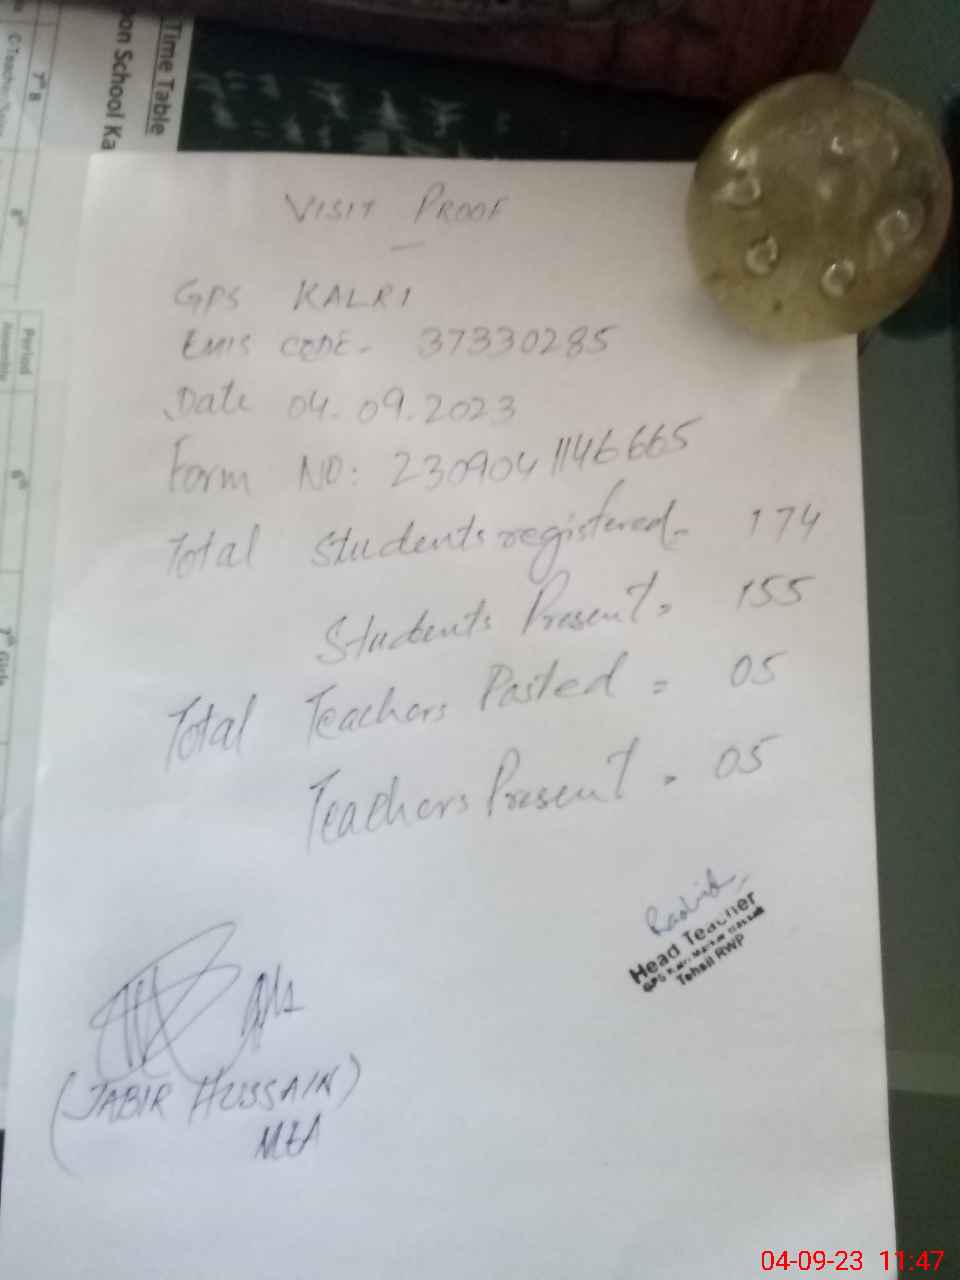 Time Table
on School Ka
7th B
Period
8th
VISIT PROOF
GPS KALRI
EMIS CODE- 37330285
Date 04.09.2023
Form NO: 230904 1146665
Total Students registered- 174
Students Present= 155
Total Teachers Posted = 05
Teachers Present = 05
Rashid
Head Teacher
GPS
Tehsil RWP
(JABIR HUSSAIN)
MEA
04-09-23 11:47